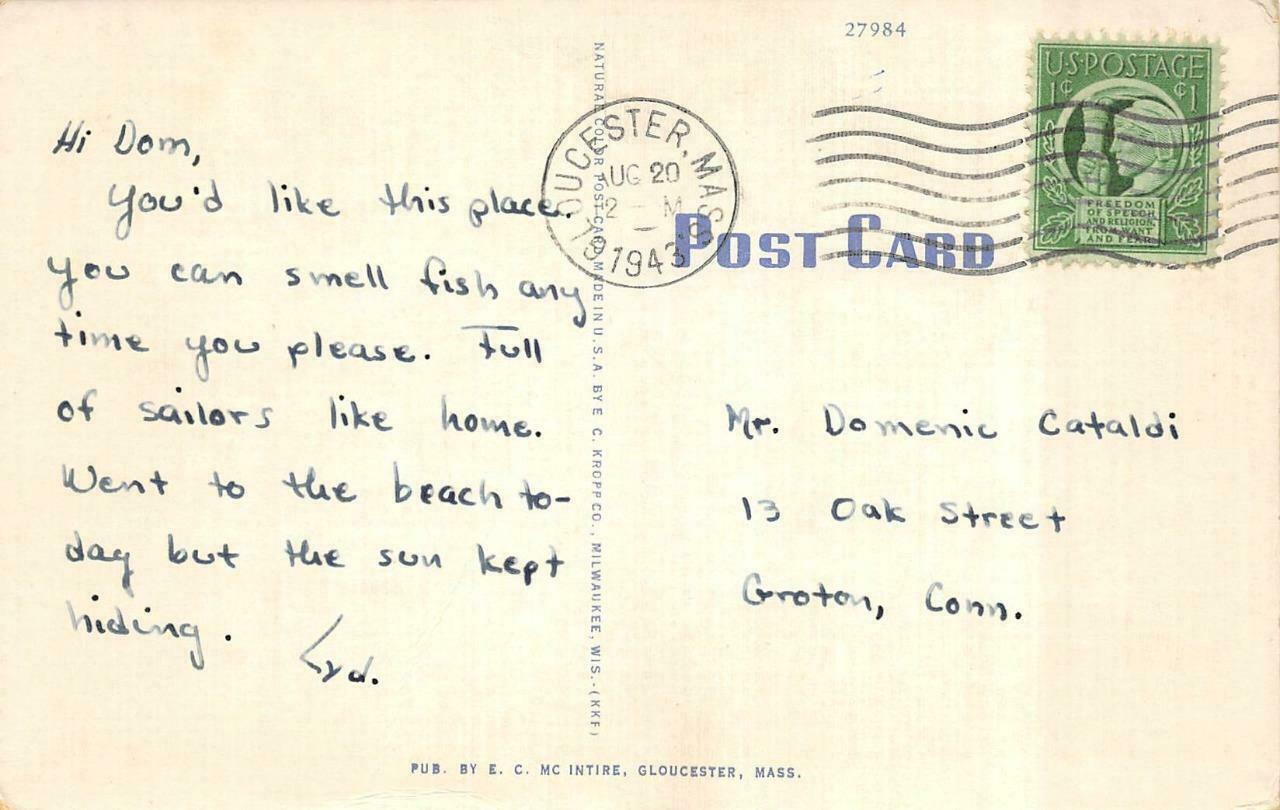 27984
U·S·POSTAGE
1¢ ¢1
FREEDOM
OF SPEECH
AND RELIGION,
FROM WANT
AND FEAR
OUCESTER, MASS
AUG 20
12 - M
1943
POST CARD
Hi Dom,
You'd like this place.
You can smell fish any
time you please. Full
of sailors like home.
Went to the beach to-
day but the sun kept
hiding.
Mr. Domenic Cataldi
13 Oak Street
Groton, Conn.
NATURAL COLOR POST CARD MADE IN U.S.A. BY E. C. KROPP CO., MILWAUKEE, WIS.-(KKF)
PUB. BY E. C. MC INTIRE, GLOUCESTER, MASS.